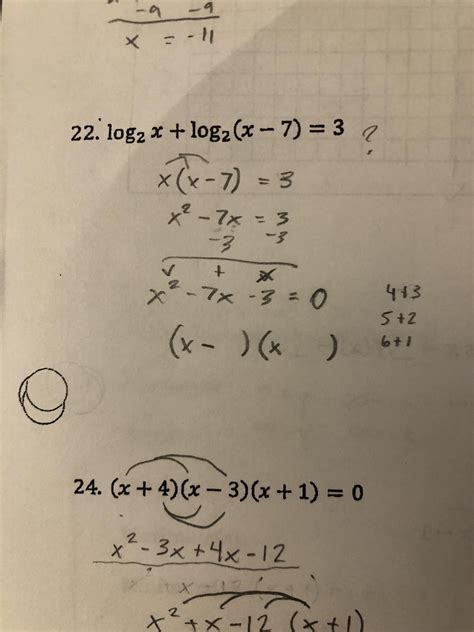 -9 -9
x = -11
22. log₂ x + log₂(x − 7) = 3 ?
x(x-7) = 3
x² - 7x = 3
-3 -3
x² - 7x - 3 = 0
4+3
5+2
(x - )(x )
6+1
24. (x + 4)(x − 3)(x + 1) = 0
x² - 3x + 4x - 12
x² + x - 12 (x+1)